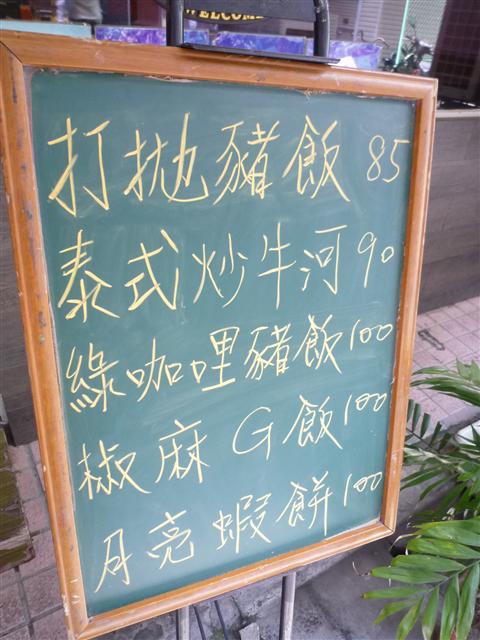 WELCOME
打拋豬飯 85
泰式炒牛河 90
綠咖哩豬飯 100
椒麻G飯 100
月亮蝦餅 100